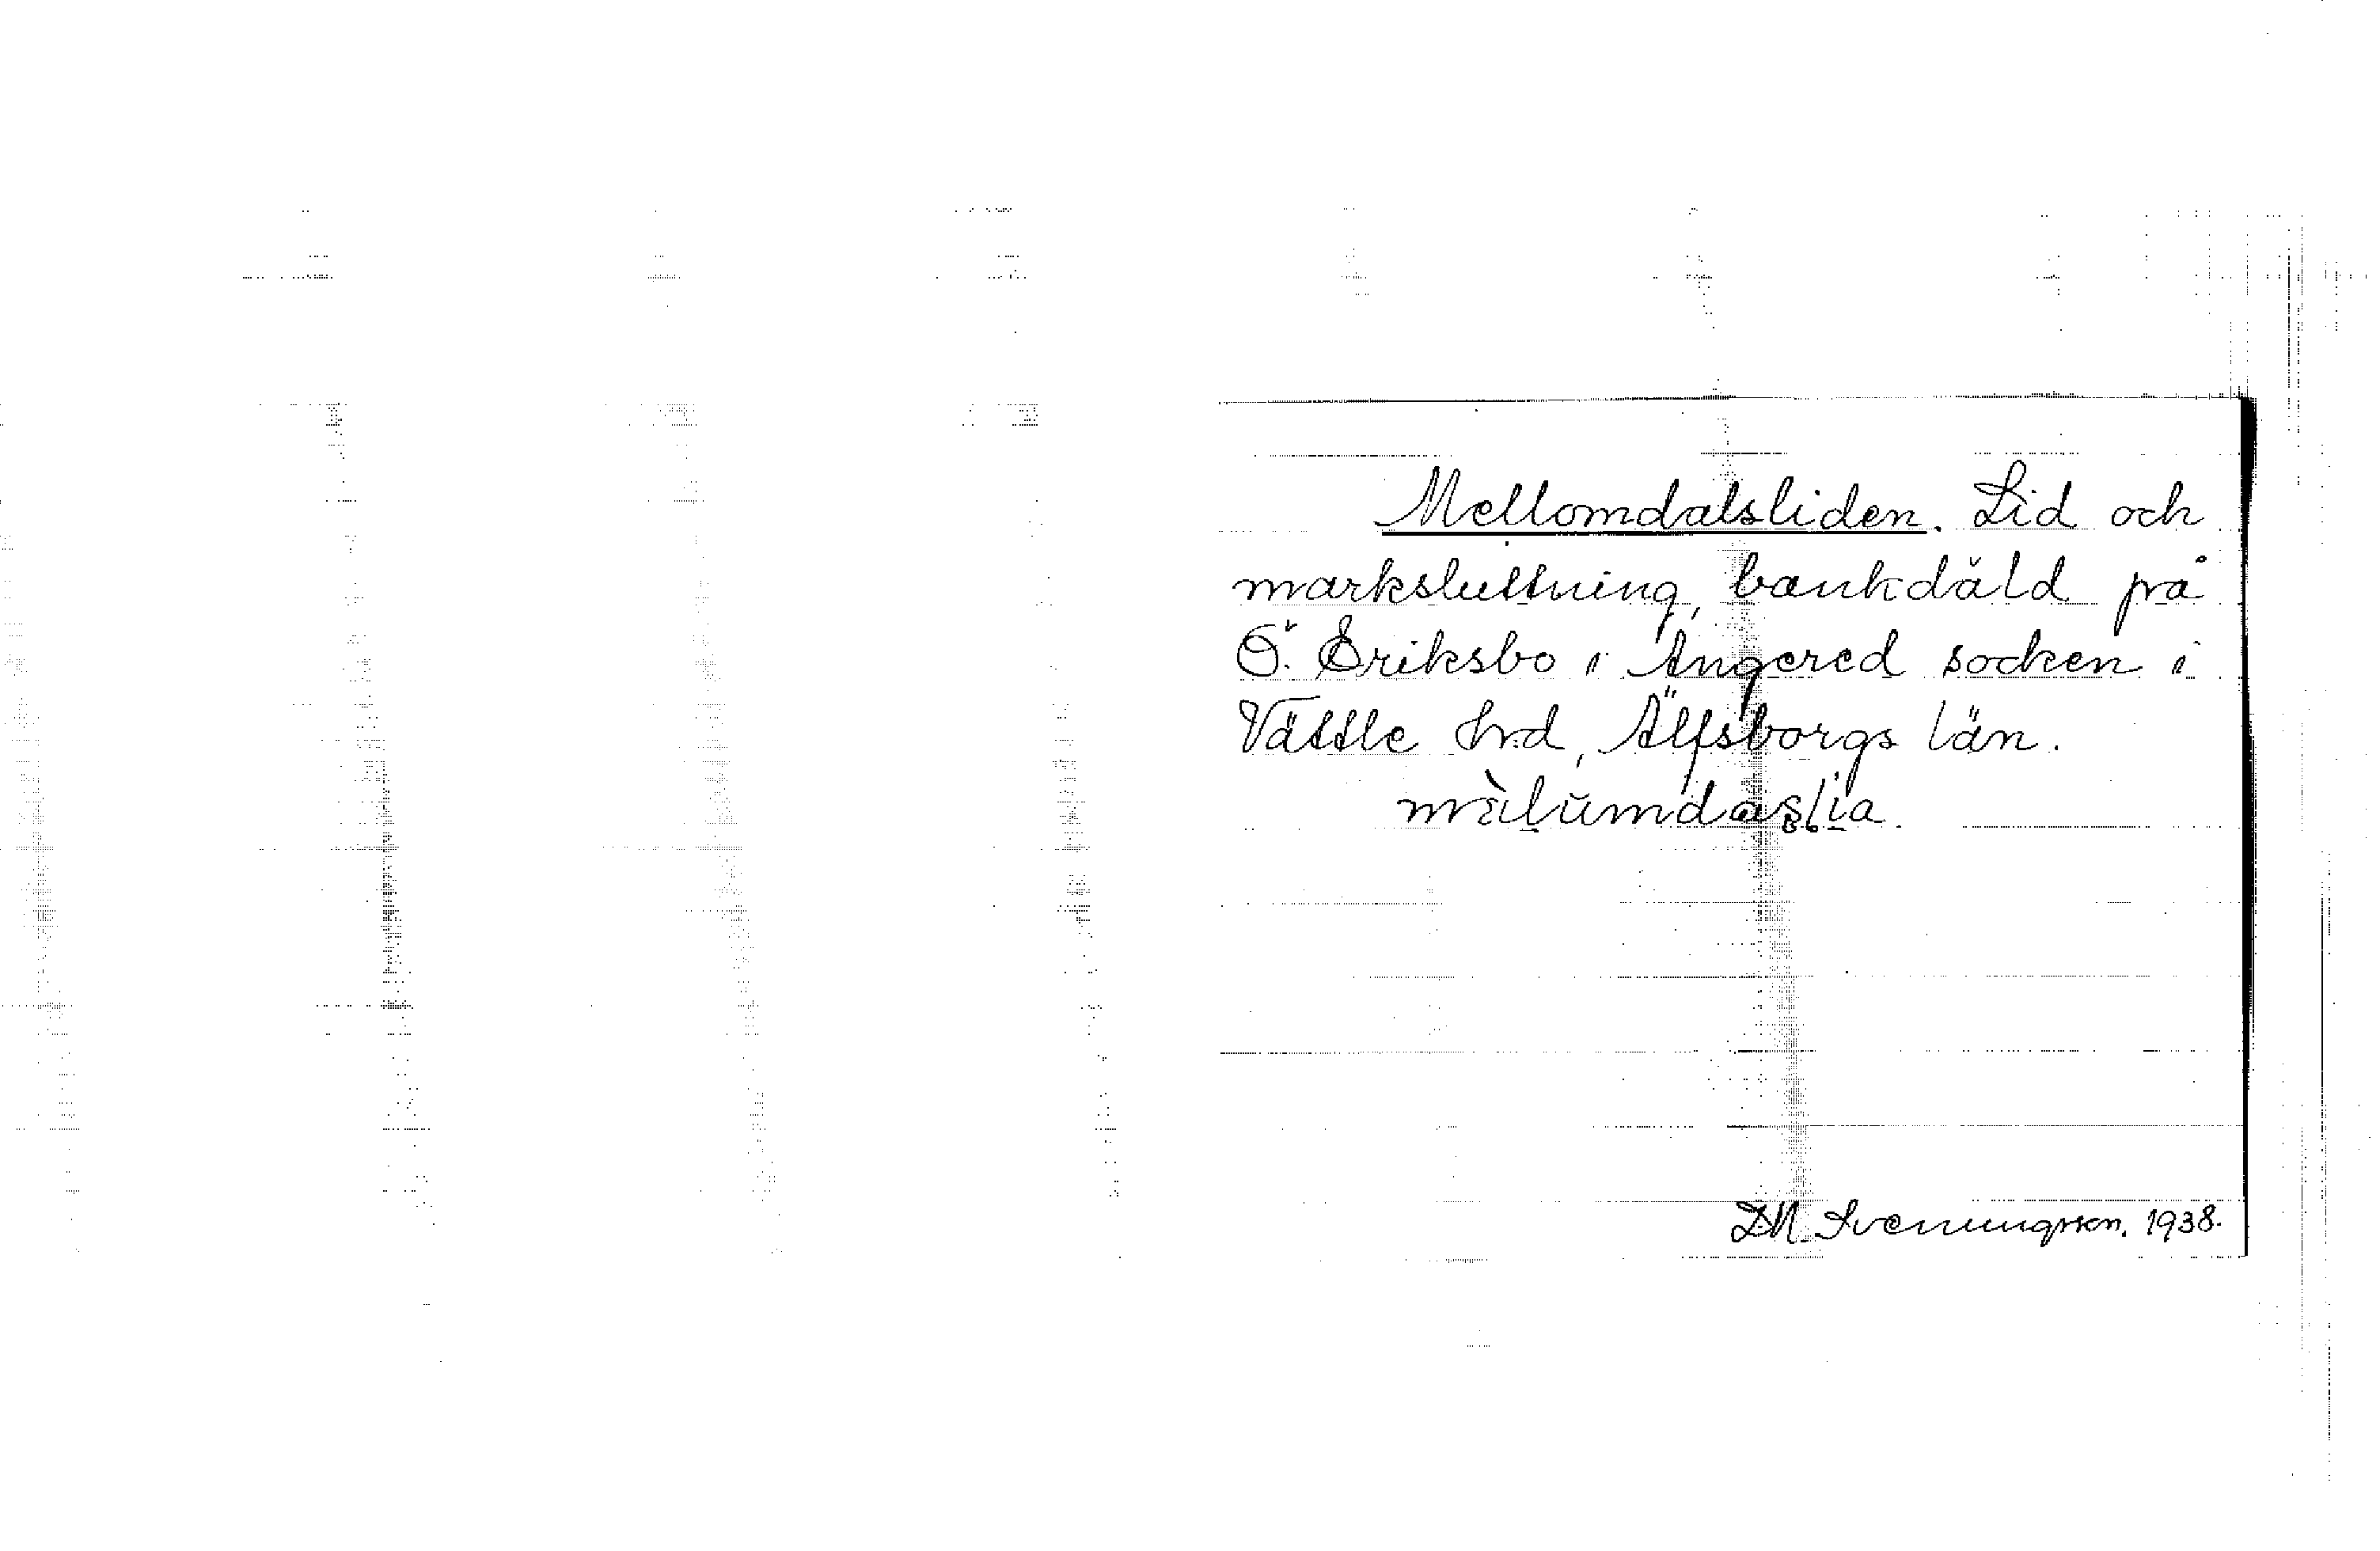 Mellomdalsliden. Lid och
marksluttning, bankdäld på
Ö. Eriksbo i Angered socken i
Vättle hrd, Älfsborgs län.
1938.